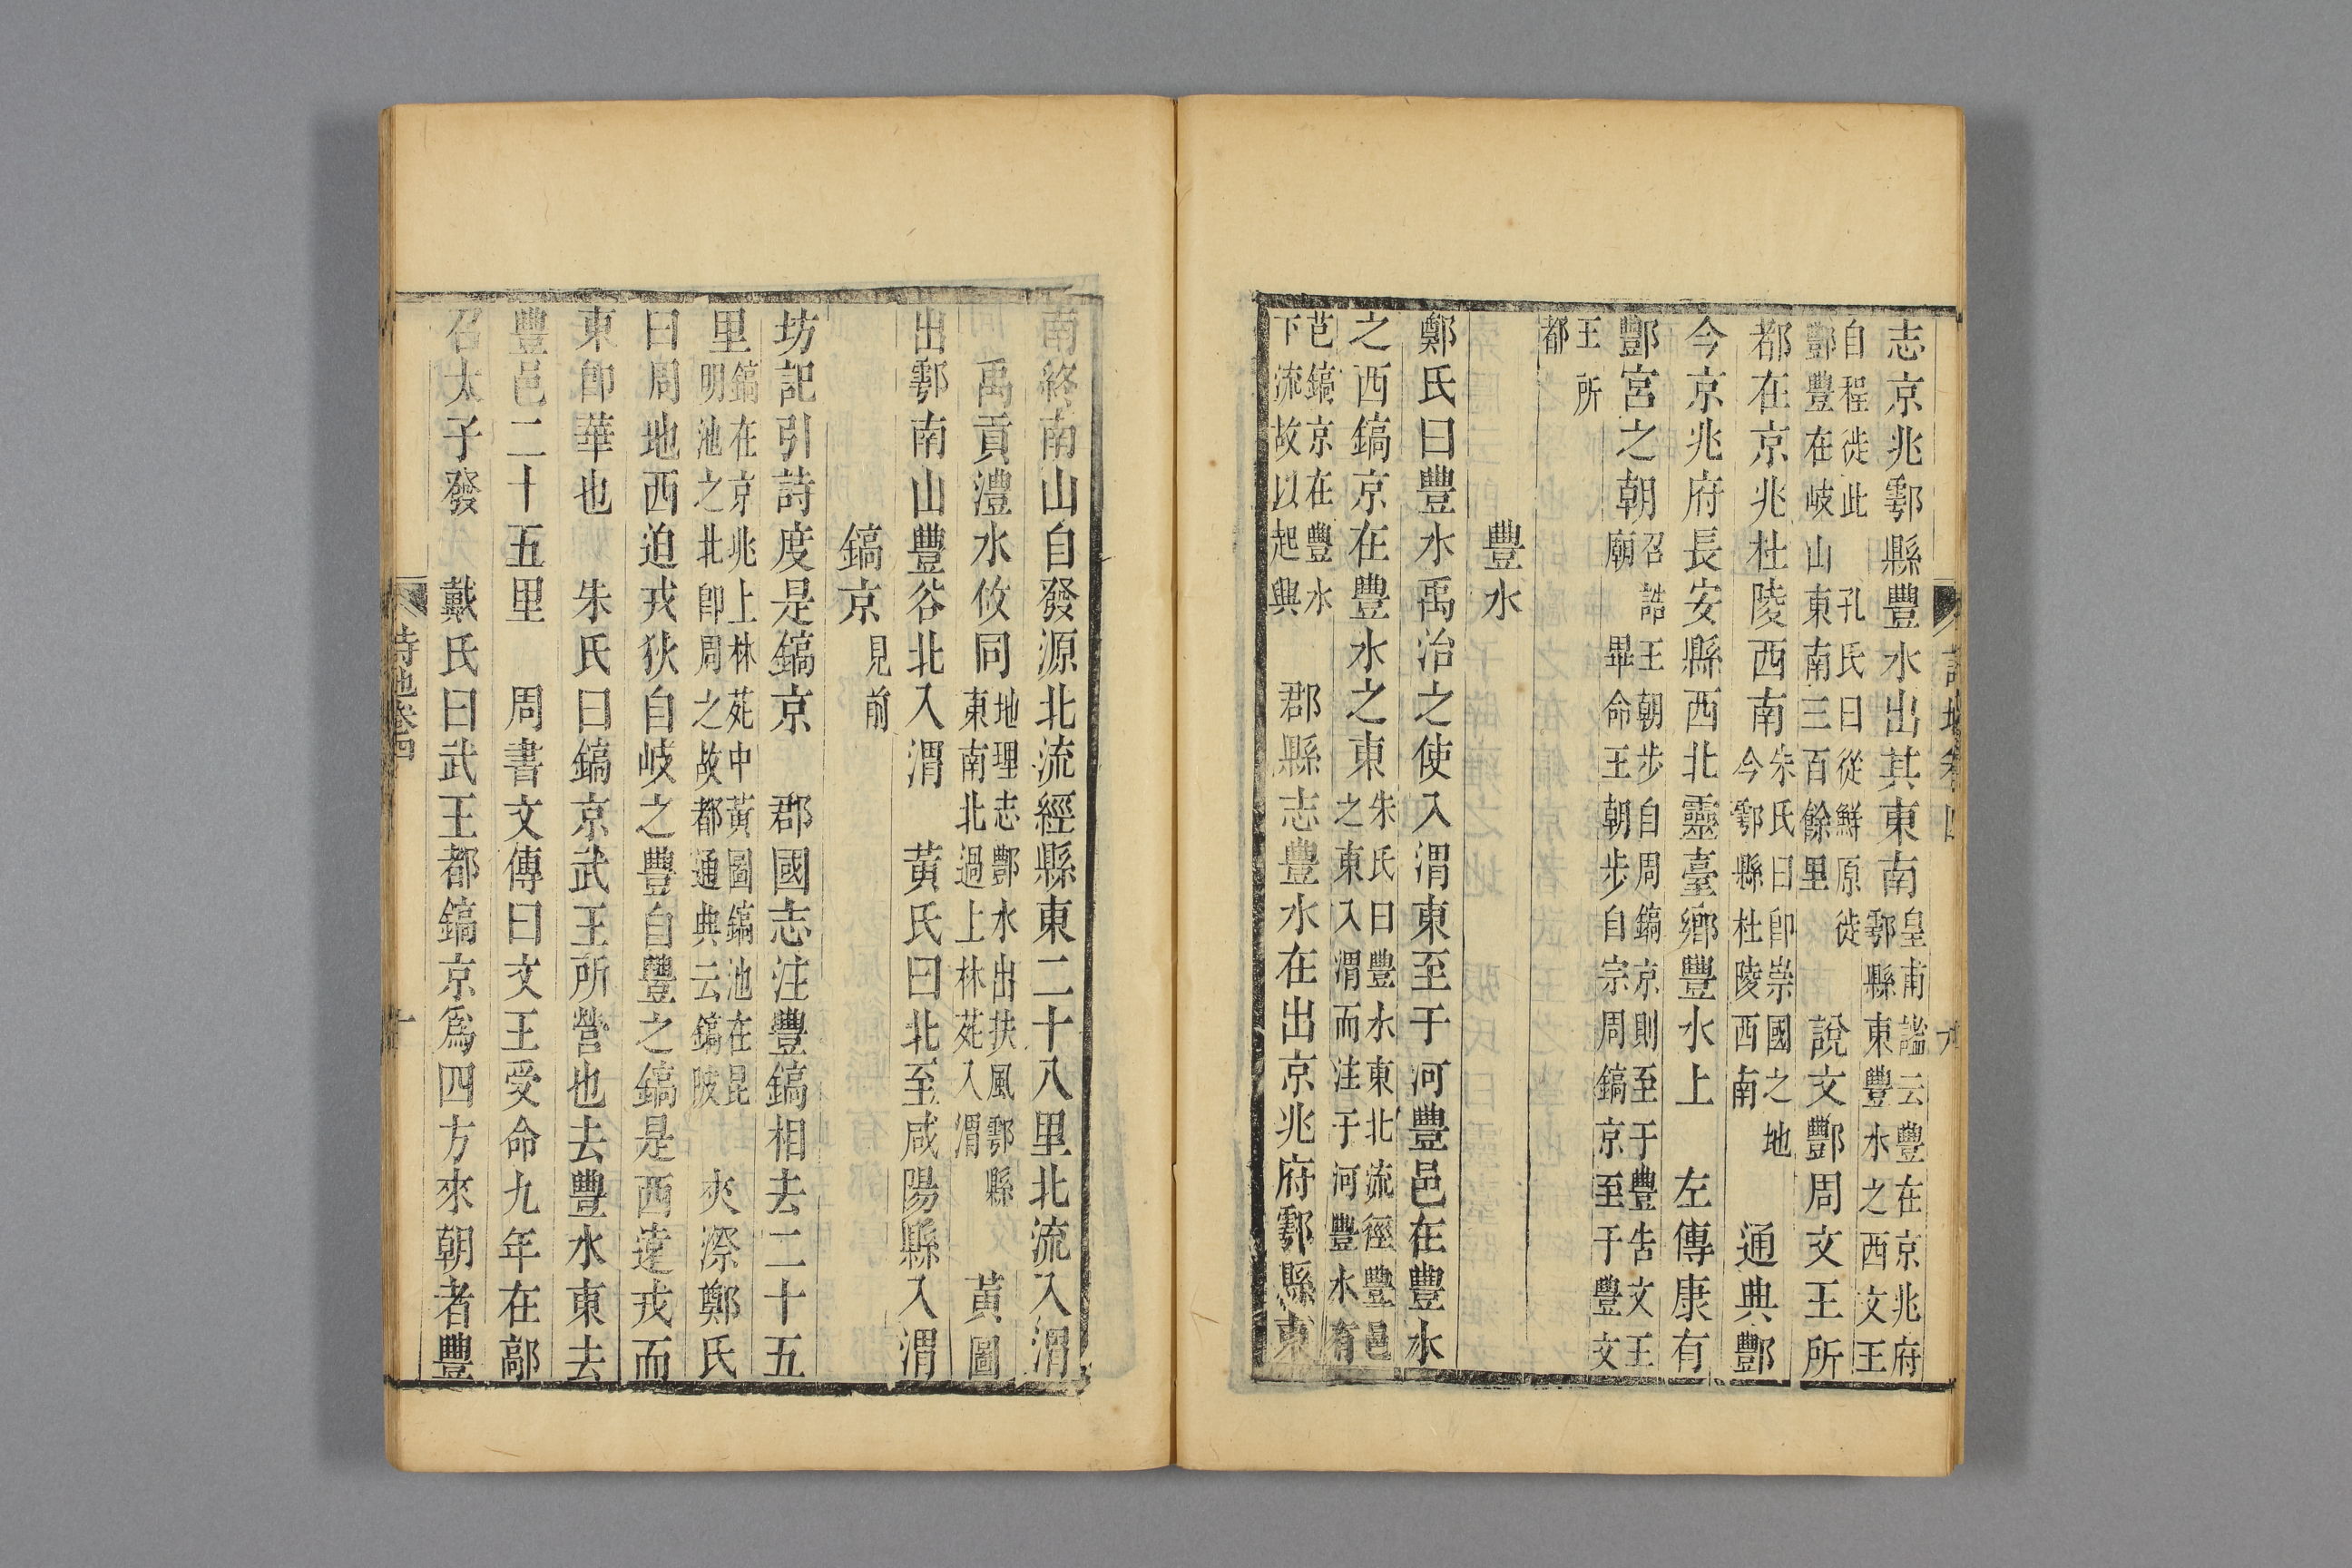 志京兆鄠縣豐水出其東南皇甫謐云豐在京兆府鄠縣東豐水之西文王
自程徙此酆豐在岐山東南三百餘里孔氏曰從鮮原徙　說文酆周文王所
都在京兆杜陵西南朱氏曰卽崇國之地今鄠縣杜陵西南　通典酆
今京兆府長安縣西北靈臺鄉豐水上　左傳康有
酆宮之朝召誥王朝步自周鎬京則至于豐告文王廟　畢命王朝步自宗周鎬京至于豐文
王所都
豐水
鄭氏曰豐水禹治之使入渭東至于河豐邑在豐水
之西鎬京在豐水之東朱氏曰豐水東北流徑豐邑之東入渭而注于河豐水有
芑鎬京在豐水下流故以起興　郡縣志豐水在出京兆府鄠縣東
南終南山自發源北流經縣東二十八里北流入渭
禹貢灃水攸同地理志酆水出扶風鄠縣東南北過上林苑入渭　黃圖
出鄠南山豐谷北入渭　黃氏曰北至咸陽縣入渭
鎬京見前
坊記引詩度是鎬京　郡國志注豐鎬相去二十五
里鎬在京兆上林苑中黃圖鎬池在昆明池之北卽周之故都通典云鎬陂　夾漈鄭氏
曰周地西迫戎狄自岐之豐自豐之鎬是西違戎而
東卽華也　朱氏曰鎬京武王所營也去豐水東去
豐邑二十五里　周書文傳曰文王受命九年在鄗
召太子發　戴氏曰武王都鎬京爲四方來朝者豐
詩地卷四
十